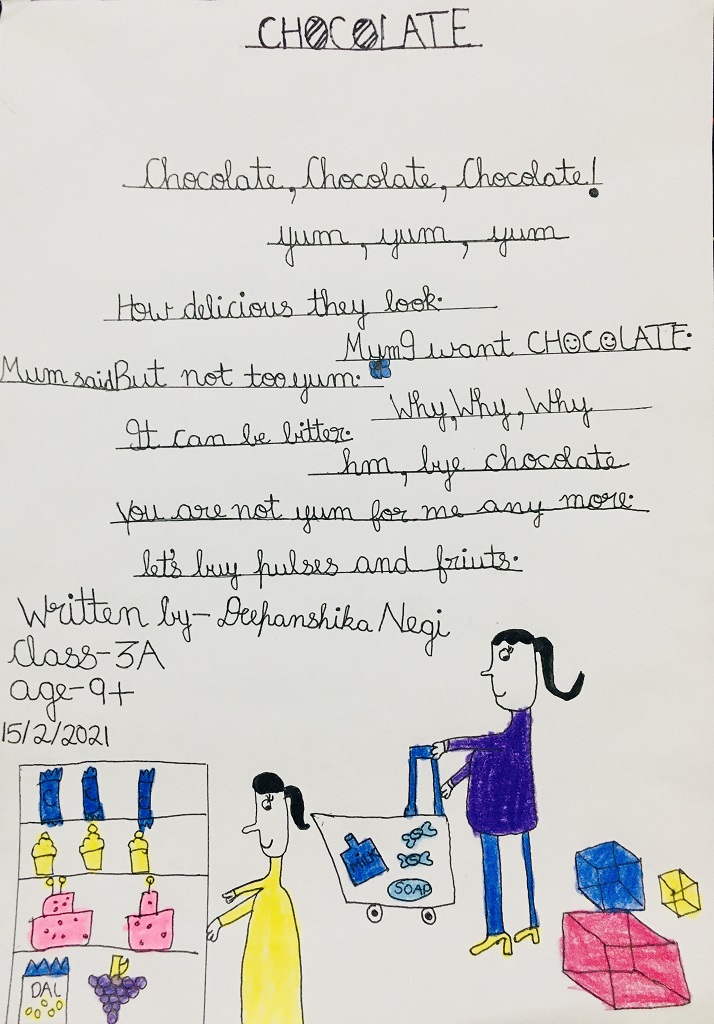 CHOCOLATE
Chocolate, Chocolate, Chocolate!
yum, yum, yum
How delicious they look.
Mum I want CHOCOLATE.
Mum said But not too yum.
Why, Why, Why
It can be bitter.
hm, bye chocolate
you are not yum for me any more.
let's buy pulses and friuts.
Written by- Deepanshika Negi
Class-3A
age-9+
15/2/2021
C C C
MILK
SOAP
DAL